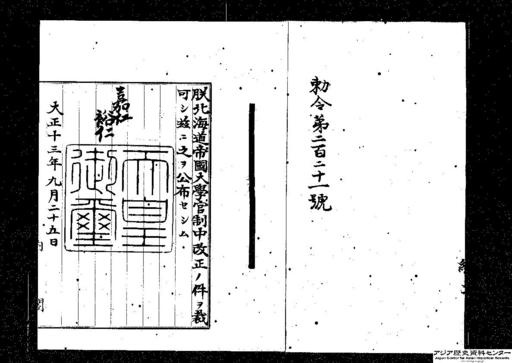 勅令第二百二十一號
朕北海道帝國大學官制中改正ノ件ヲ裁
可シ玆ニ之ヲ公布セシム
嘉仁
裕仁
天皇
御璽
大正十三年九月二十五日
内閣
アジア歴史資料センター
Japan Center for Asian Historical Records